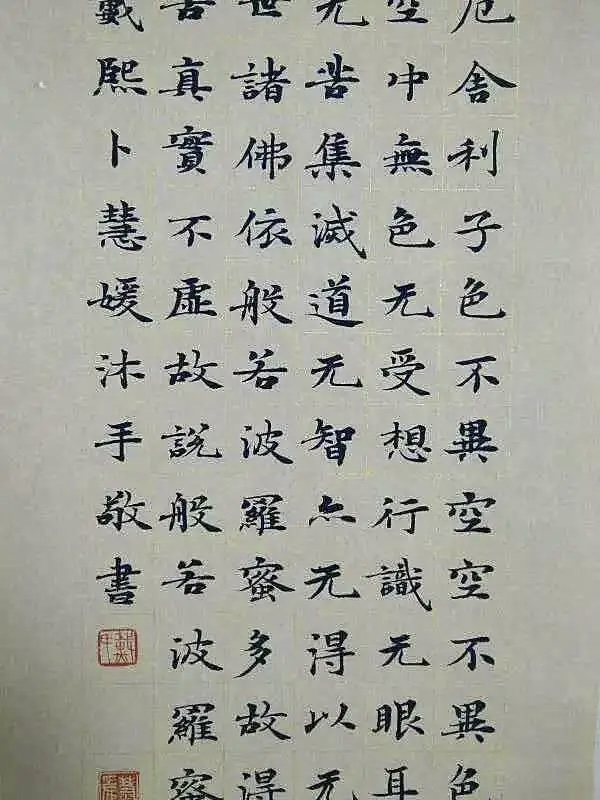 厄舍利子色不異空空不異色
空中無色无受想行識无眼耳
无苦集滅道无智亦无得以无
世諸佛依般若波羅蜜多故得
苦真實不虛故說般若波羅蜜
戴熙卜慧媛沐手敬書